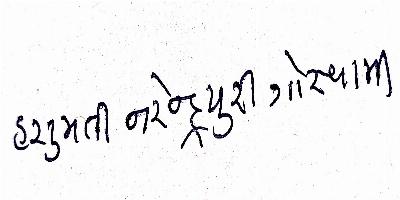 હસુમતી નરેન્દ્રપુરી ગોસ્વામી